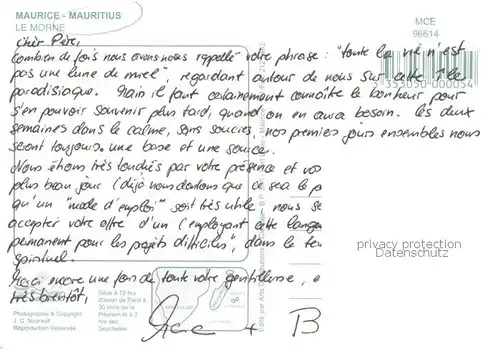 MAURICE - MAURITIUS
LE MORNE
MCE
96614
Cher Père,
Combien de fois nous avons nous rappellé votre phrase: "toute la vie n'est
pas une lune de miel", regardant autour de nous sur cette île
paradisiaque. Mais il faut certainement connaître le bonheur pour
s'en pouvoir souvenir plus tard, quand on en aura besoin. Les deux
semaines dans le calme, sans soucies, nos premiers jours ensembles nous
seront toujours une base et une source.
Nous étions très touchés par votre présence et vos
plus beau jour (déjà nous doutons que ce sea le p
qu'un "mode d'emploi" soit très utile nous se
accepter votre offre d'un (employant cette langa
permanent pour les projets difficiles", dans le te
spirituel.
Merci encore une fois de toute votre gentillesse, e
très bientôt,
+ B
3 353050 000054
Photographie & Copyright
J. C. Nourault
Reproduction Réservée
Situé à 12 hrs
d'avion de Paris à
30 mins de la
Réunion et à 3
hrs des
Seychelles
privacy protection
Datenschutz